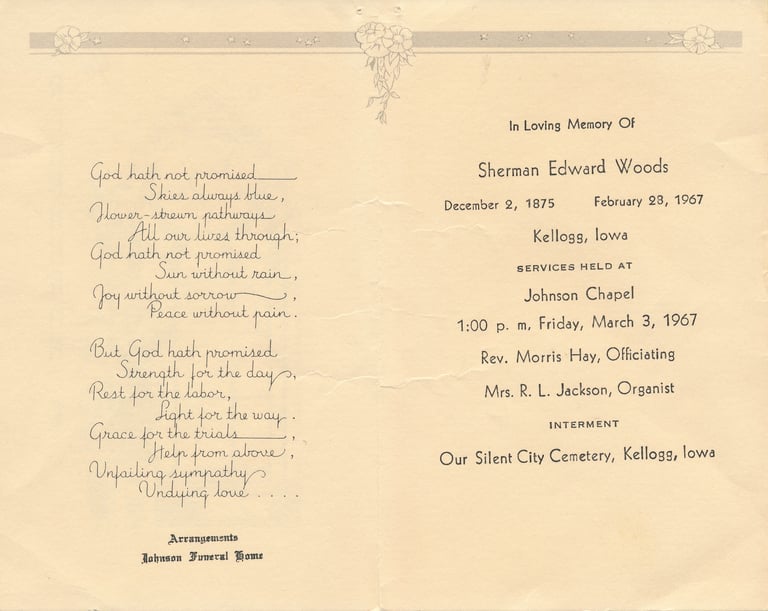 God hath not promised
Skies always blue,
Flower-strewn pathways
All our lives through;
God hath not promised
Sun without rain,
Joy without sorrow,
Peace without pain.
But God hath promised
Strength for the day,
Rest for the labor,
Light for the way.
Grace for the trials,
Help from above,
Unfailing sympathy
Undying love . . . .
Arrangements
Johnson Funeral Home
In Loving Memory Of
Sherman Edward Woods
December 2, 1875 February 28, 1967
Kellogg, Iowa
SERVICES HELD AT
Johnson Chapel
1:00 p. m, Friday, March 3, 1967
Rev. Morris Hay, Officiating
Mrs. R. L. Jackson, Organist
INTERMENT
Our Silent City Cemetery, Kellogg, Iowa